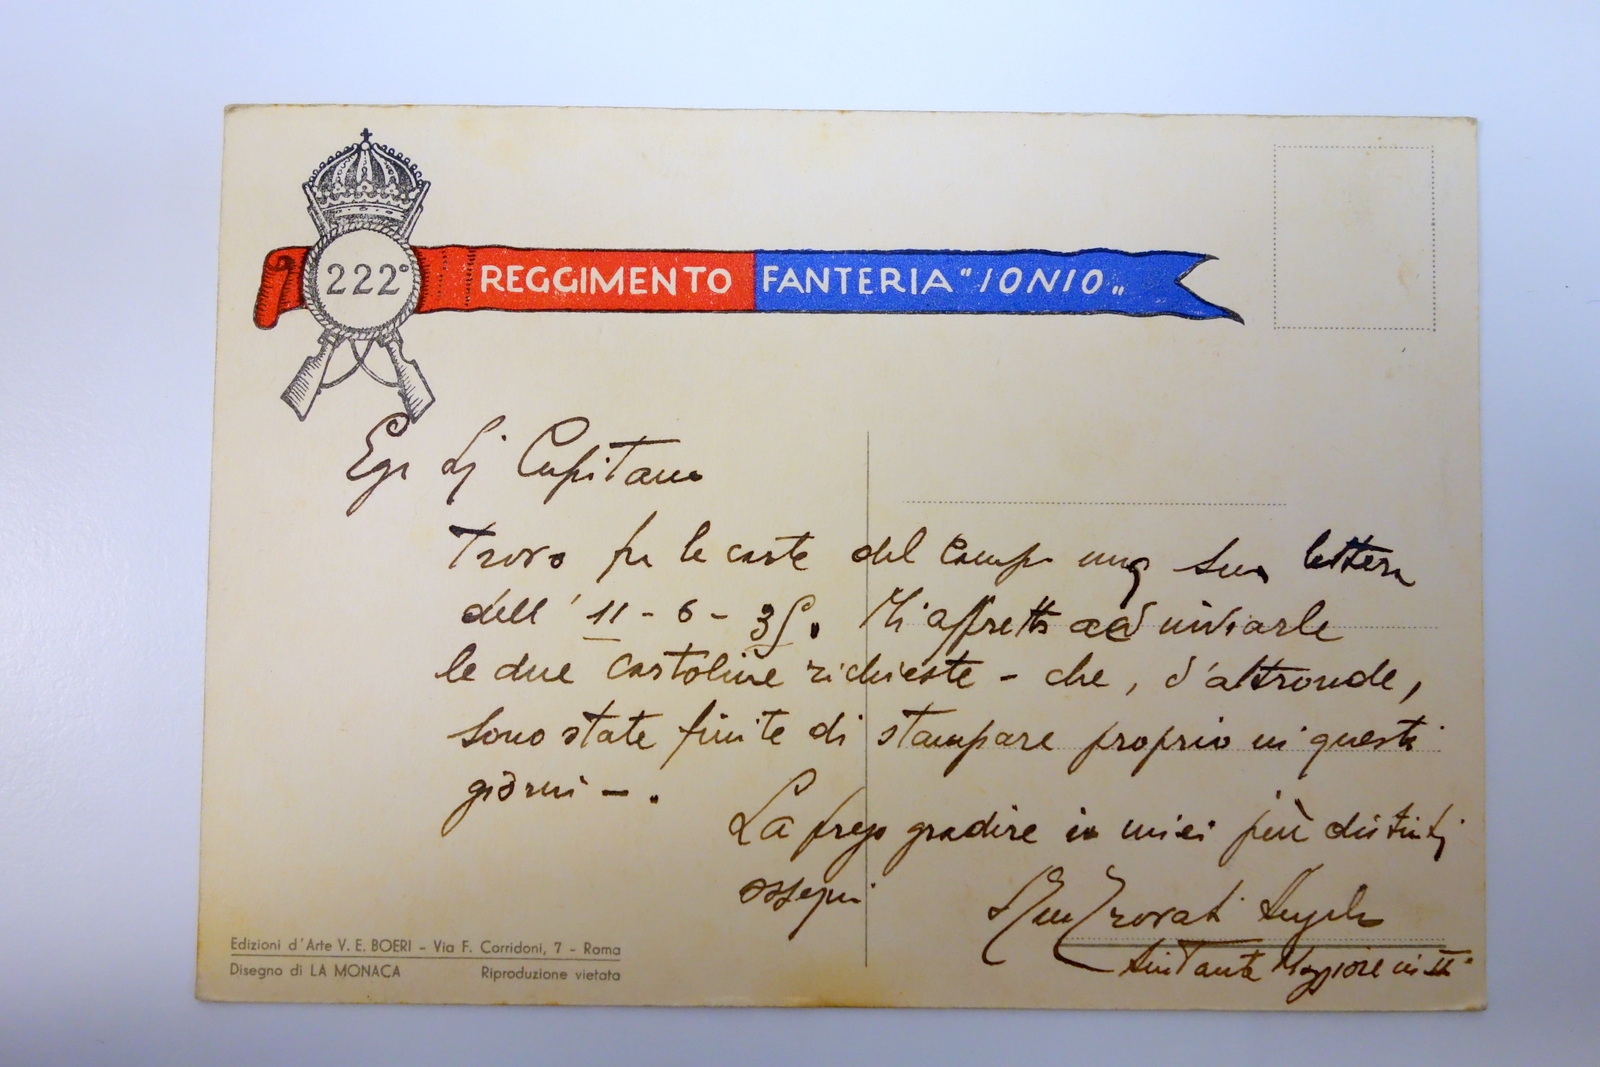 222°
REGGIMENTO FANTERIA "IONIO"
Egr Sig Capitano
Trovo fra le carte del campo una sua lettera
dell' 11-6-35. Mi affretto ad inviarle
le due cartoline richieste - che, d'altronde,
sono state finite di stampare proprio in questi
giorni -.
La prego gradire i miei più distinti
ossequi
Aiutante Maggiore in
Edizioni d'Arte V. E. BOERI - Via F. Corridoni, 7 - Roma
Disegno di LA MONACA Riproduzione vietata